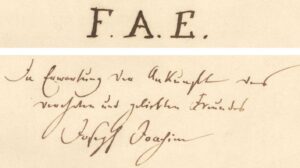 F. A. E.
In Erwartung der Ankunft des
verehrten und geliebten Freundes
Joseph Joachim